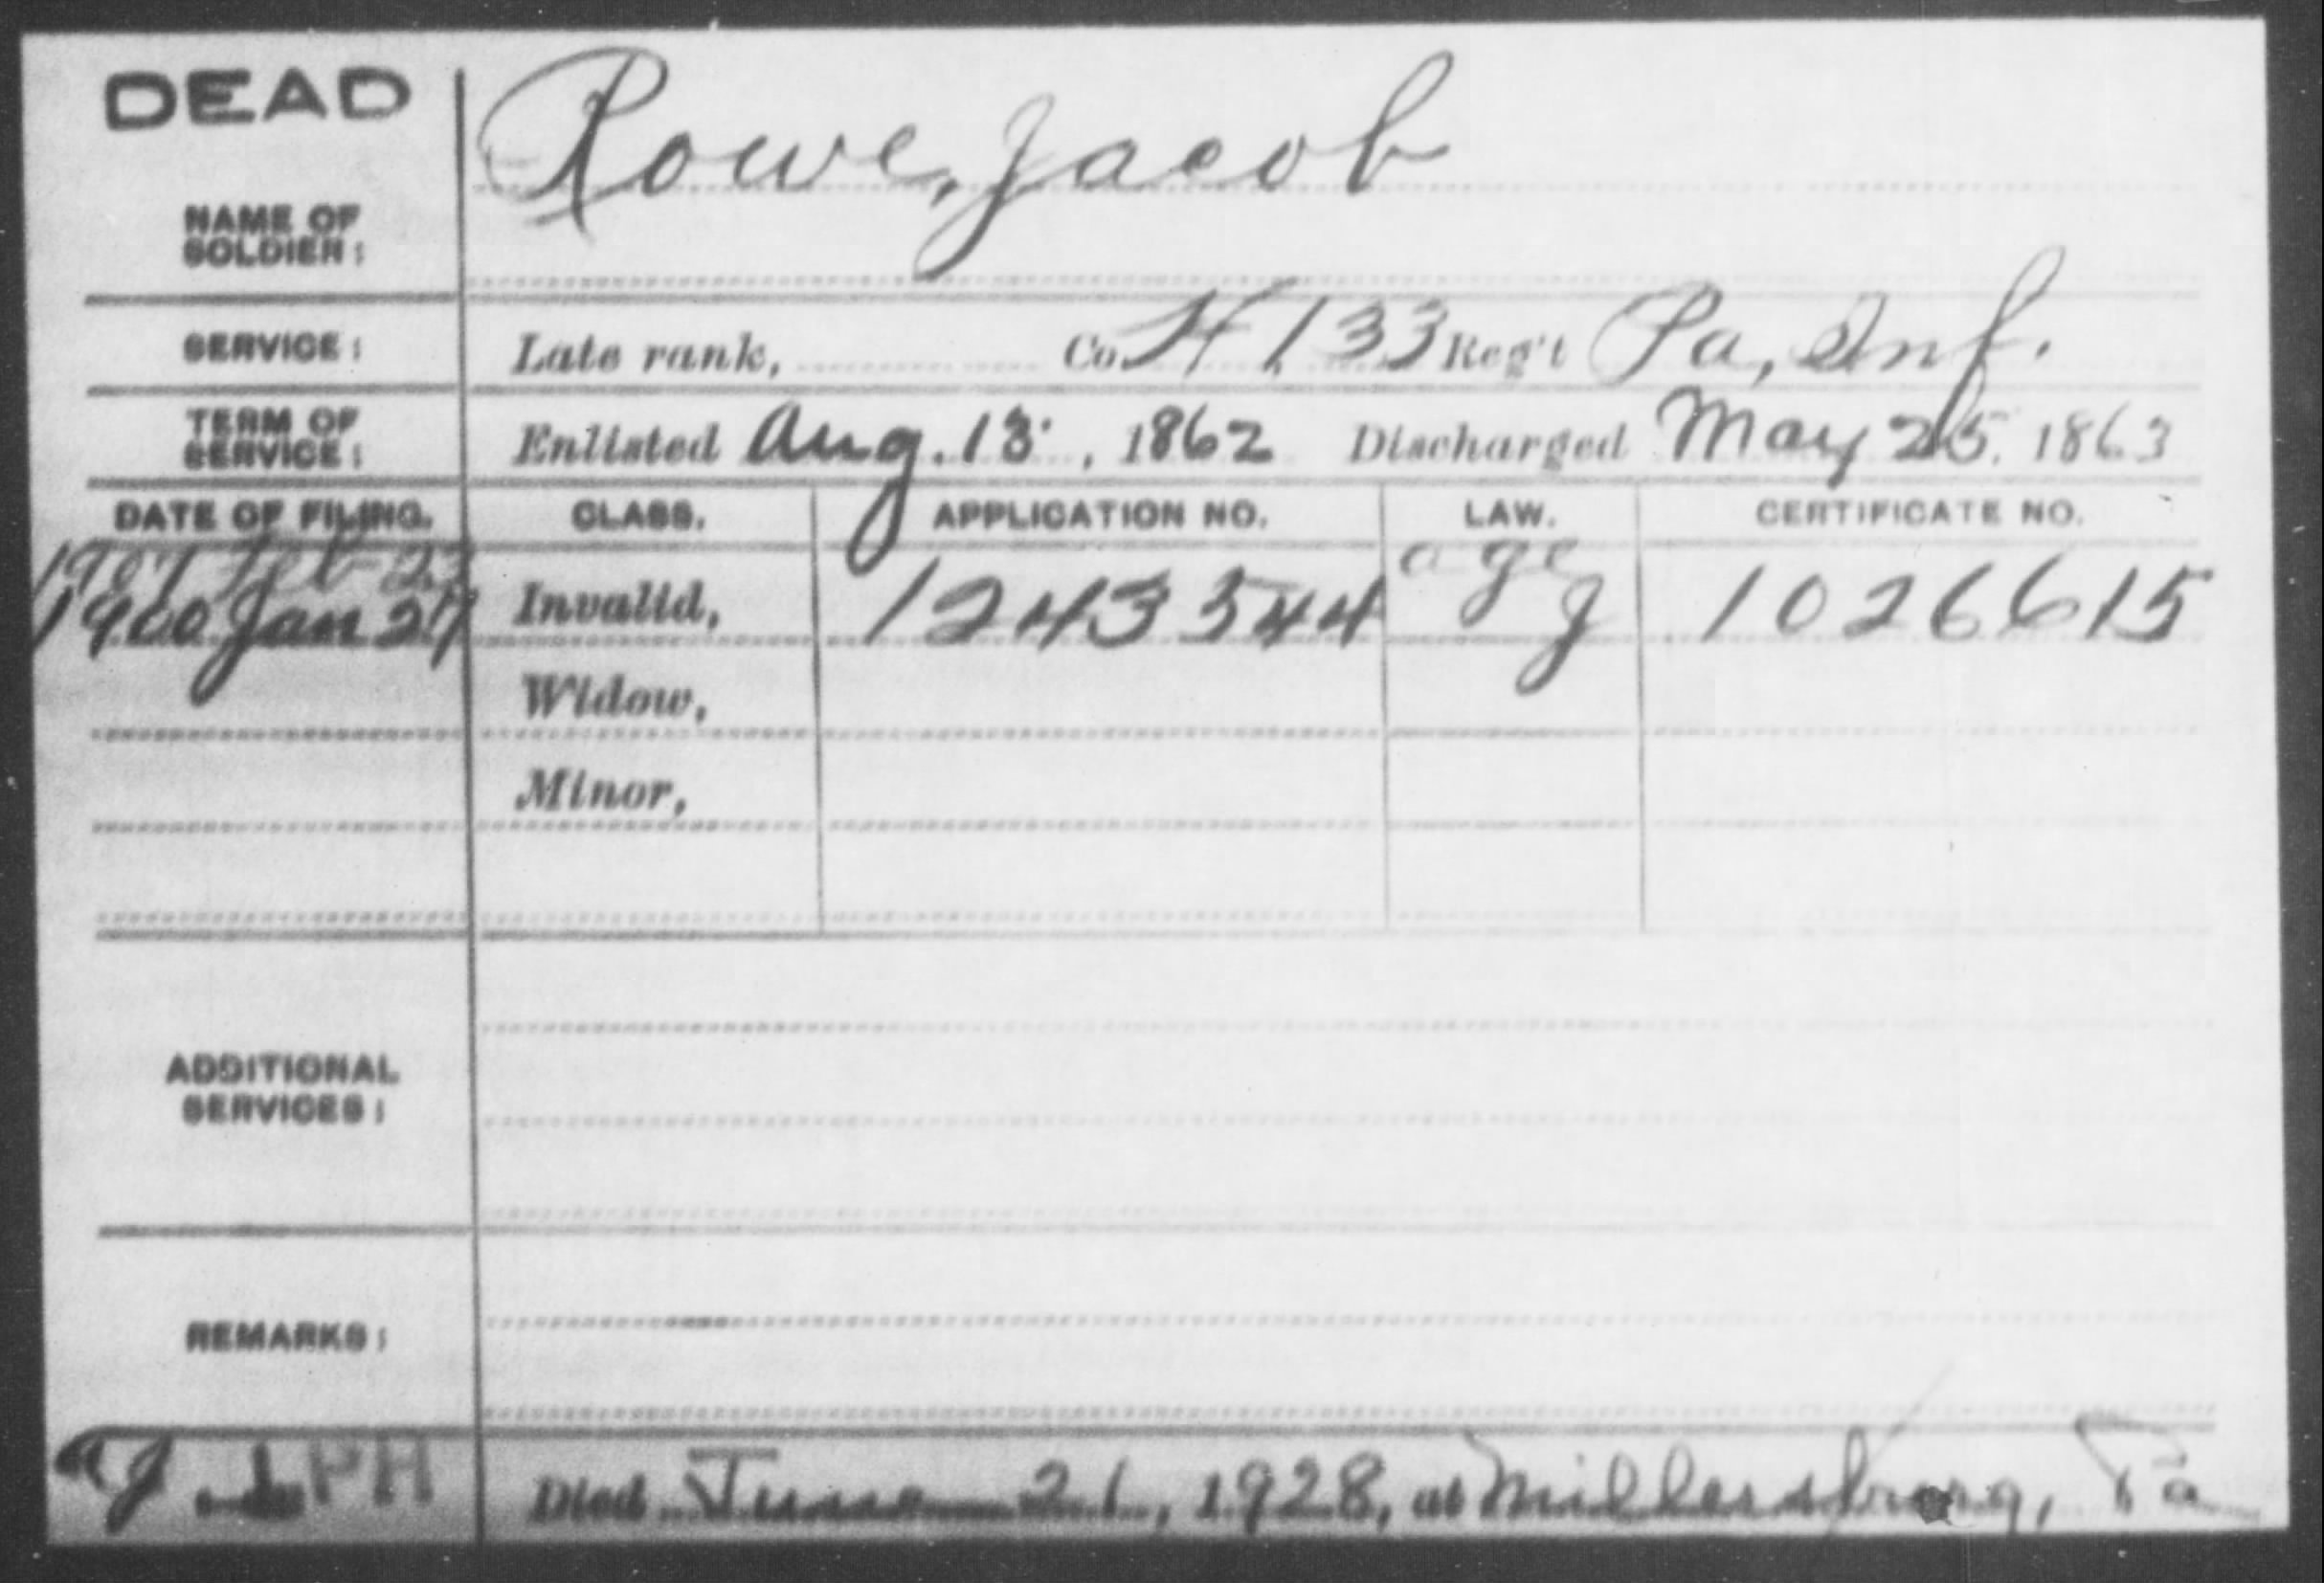 DEAD
Rowe, Jacob
NAME OF
SOLDIER:
SERVICE: Late rank, Co. H 133 Reg't Pa, Inf.
TERM OF
SERVICE: Enlisted Aug. 13, 1862 Discharged May 25, 1863
DATE OF FILING. CLASS. APPLICATION NO. LAW. CERTIFICATE NO.
1907 Feb 23 age
1900 Jan 27 Invalid, 1243544 g 1026615
Widow,
Minor,
ADDITIONAL
SERVICES:
REMARKS:
PH Died June 21, 1928, at Millersburg, Pa